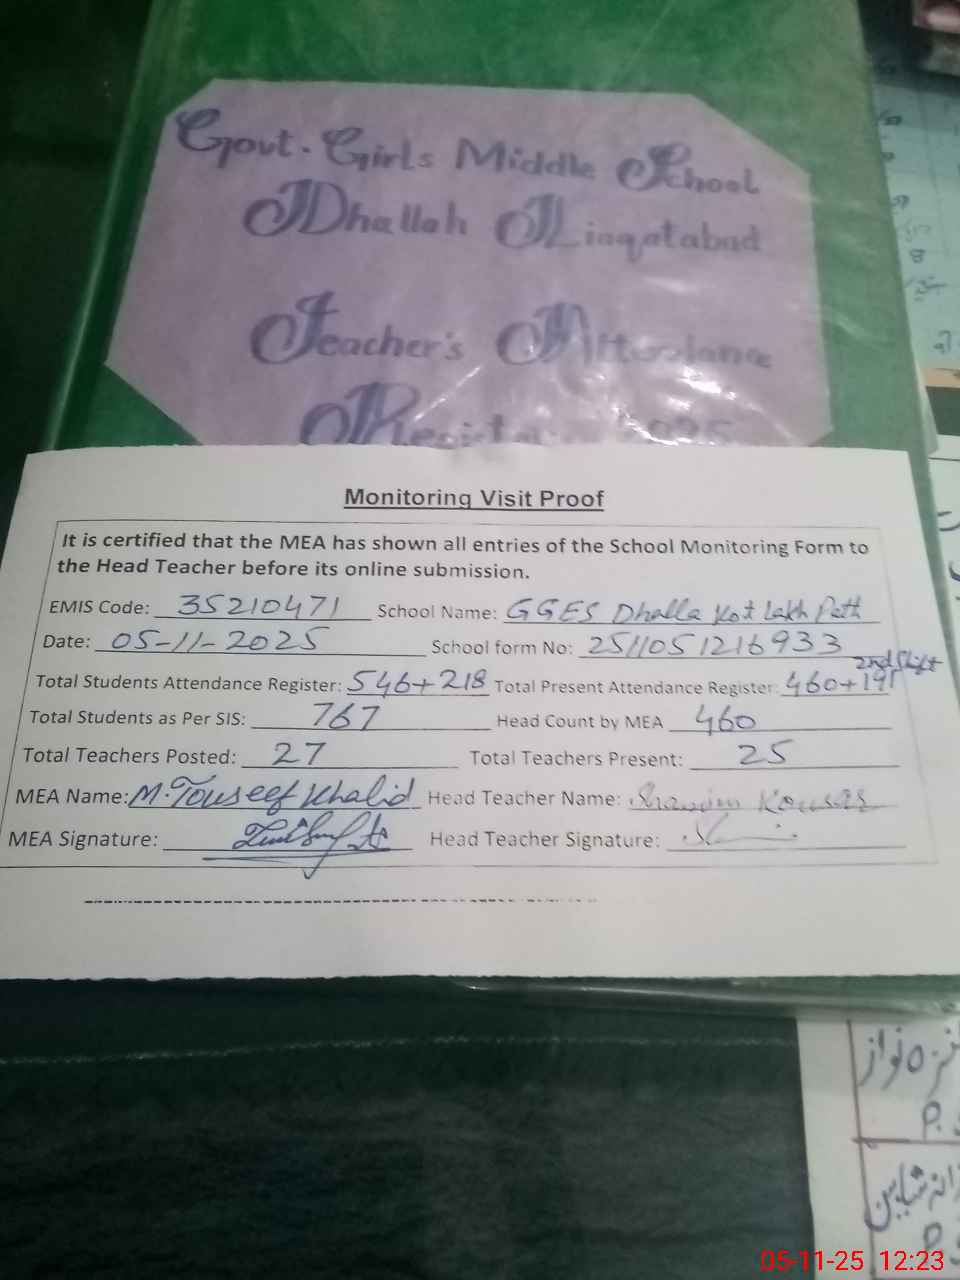 Govt. Girls Middle School
Dhallah Liaqatabad
Teacher's Attendance
Register 2025
Monitoring Visit Proof
It is certified that the MEA has shown all entries of the School Monitoring Form to
the Head Teacher before its online submission.
EMIS Code: 35210471 School Name: GGES Dhalla Kot Lakh Path
Date: 05-11-2025 School form No: 2511051216933
2nd Shift
Total Students Attendance Register: 546+218 Total Present Attendance Register: 460+191
Total Students as Per SIS: 767 Head Count by MEA 460
Total Teachers Posted: 27 Total Teachers Present: 25
MEA Name: M. Touseef Khalid Head Teacher Name: Shamim Kousar
MEA Signature: Head Teacher Signature:
نواز
P.
شاہین
P.
05-11-25 12:23